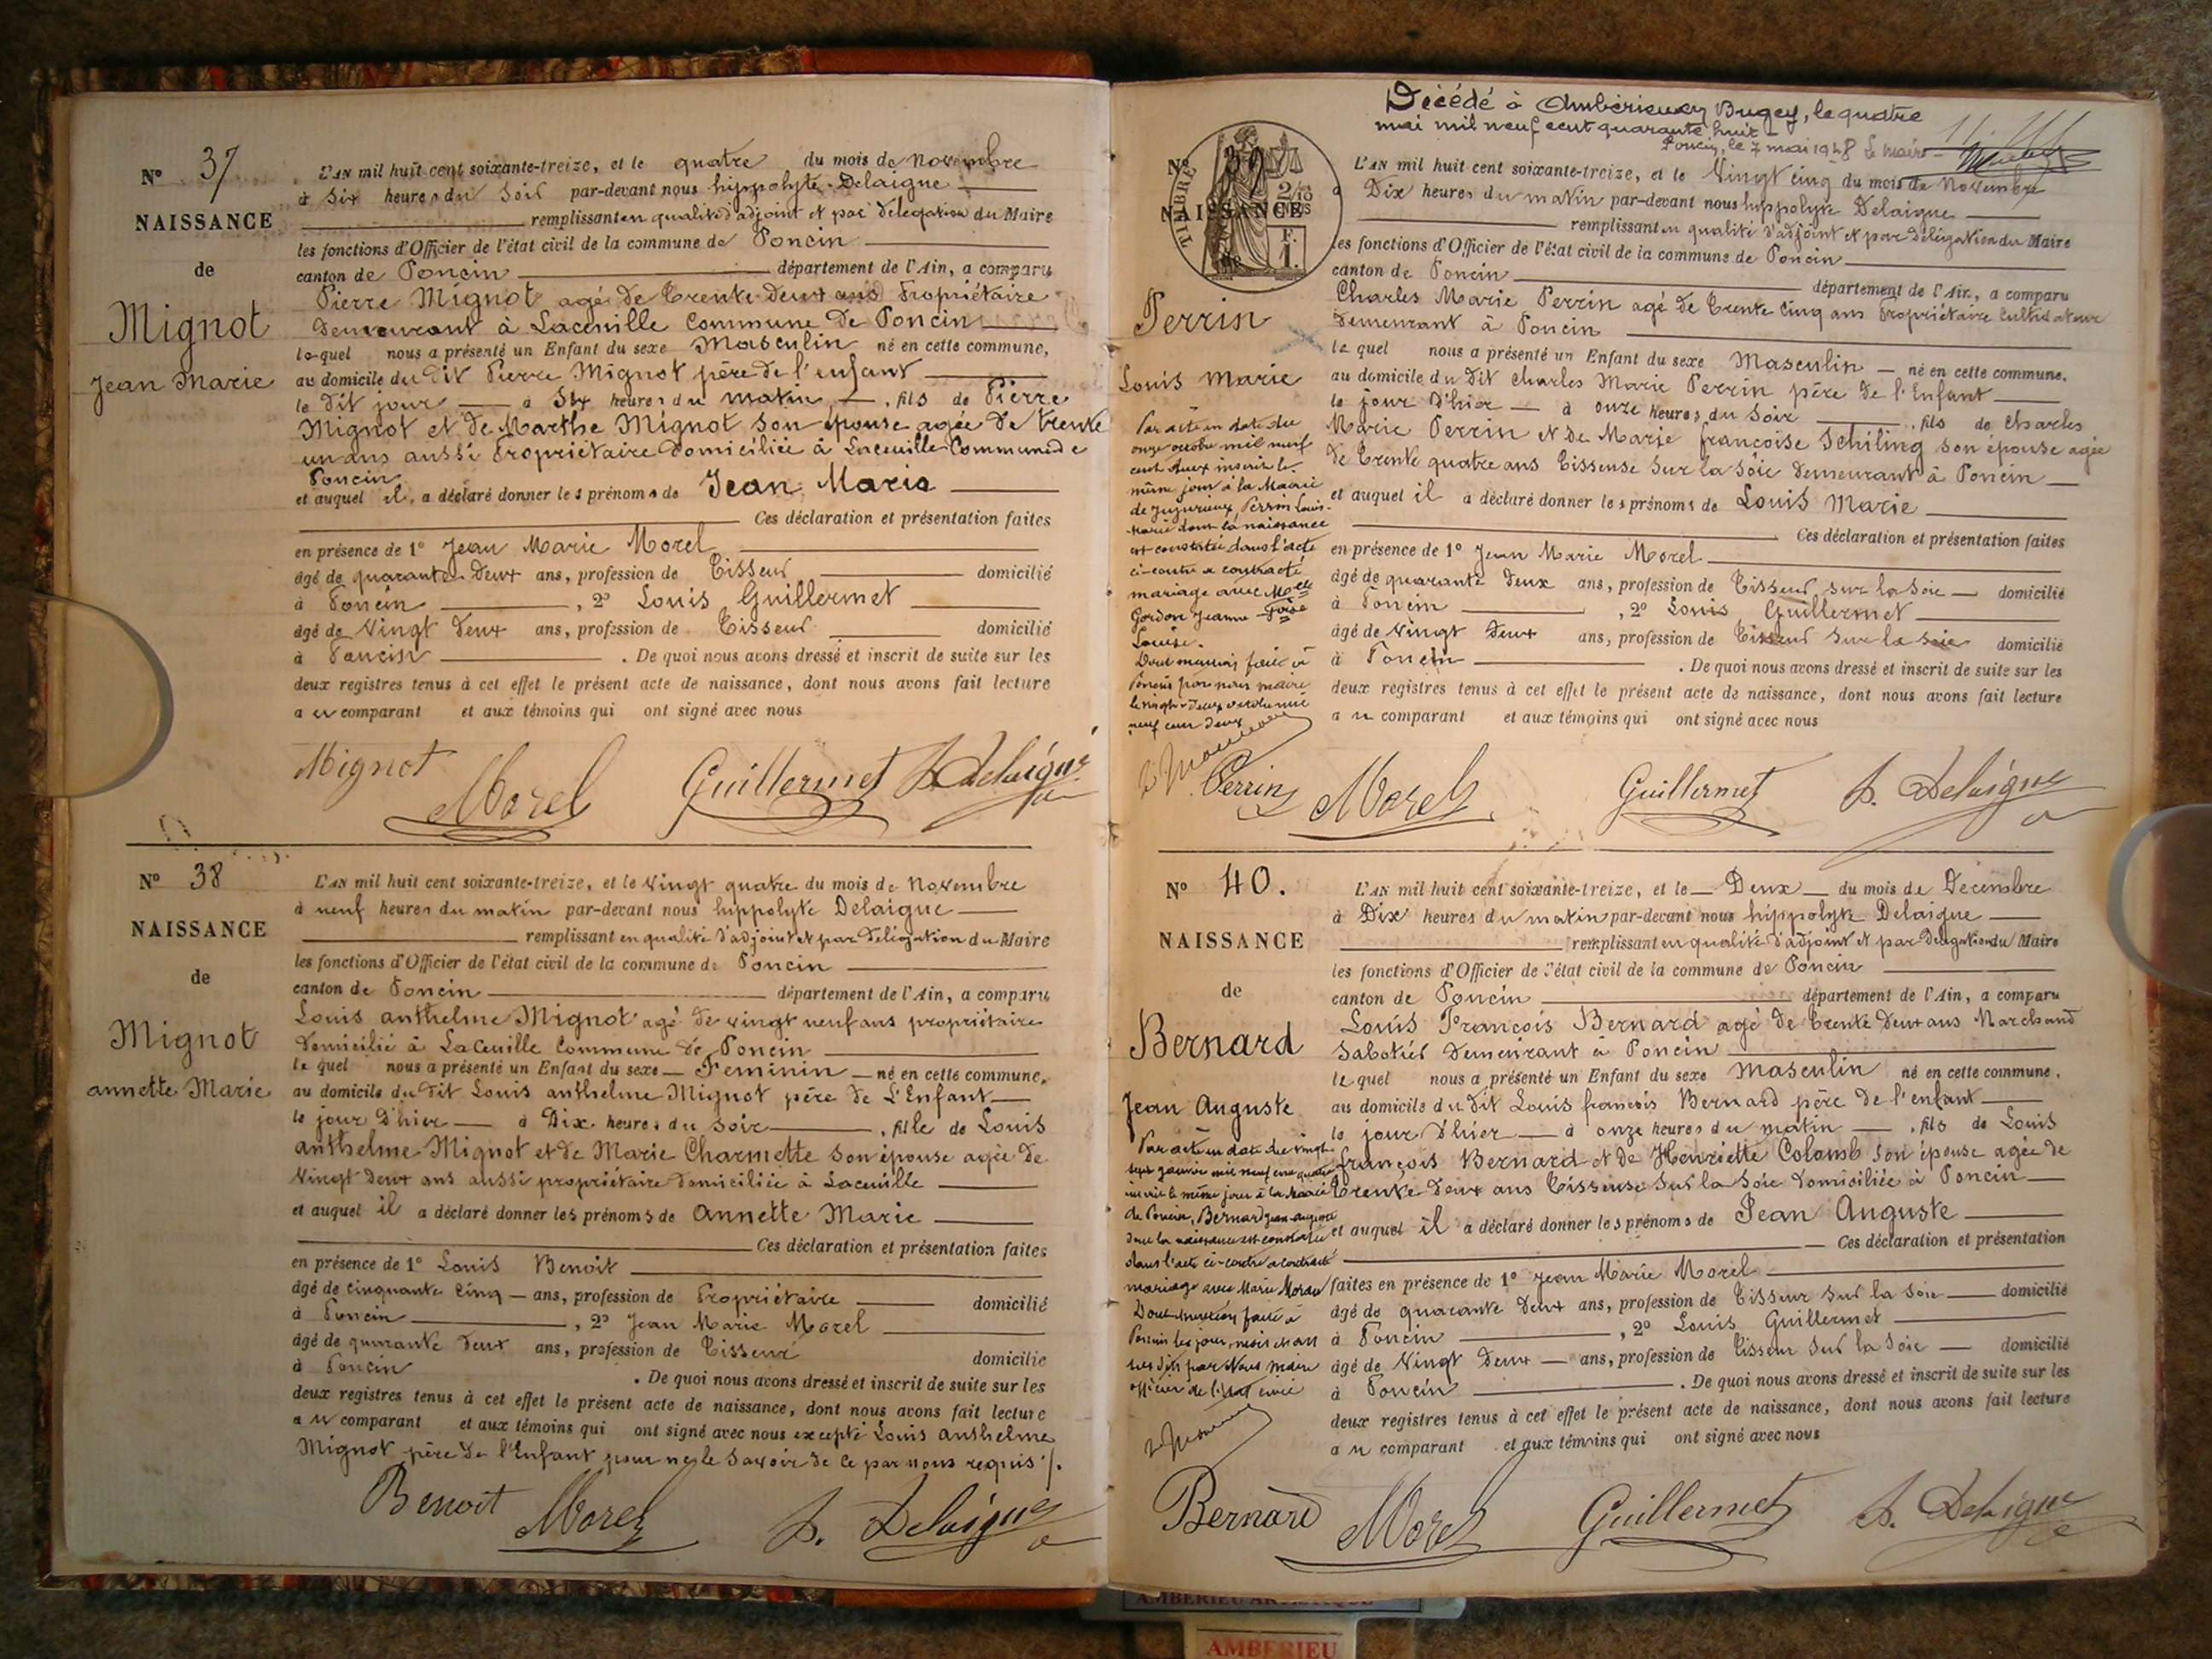 Nº 37
NAISSANCE
de
Mignot
Jean Marie
L'AN mil huit cent soixante-treize, et le quatre du mois de Novembre
à Six heures du Soir par-devant nous hippolyte Delaigue
remplissant en qualité d'adjoint et par délégation du Maire
les fonctions d'Officier de l'état civil de la commune de Poncin
canton de Poncin département de l'Ain, a comparu
Pierre Mignot agé de trente deux ans Propriétaire
demeurant à Laceuille Commune de Poncin
lequel nous a présenté un Enfant du sexe Masculin né en cette commune,
au domicile du dit Pierre Mignot père de l'enfant
le dit jour à Six heures du matin, fils de Pierre
Mignot et de Marthe Mignot son épouse agée de trente
un ans aussi Propriétaire domiciliée à Laceuille Commune de
Poncin
et auquel il a déclaré donner les prénoms de Jean Marie
Ces déclaration et présentation faites
en présence de 1º Jean Marie Morel
âgé de quarante deux ans, profession de Tisseur domicilié
à Poncin, 2º Louis Guillermet
âgé de Vingt deux ans, profession de Tisseur domicilié
à Poncin. De quoi nous avons dressé et inscrit de suite sur les
deux registres tenus à cet effet le présent acte de naissance, dont nous avons fait lecture
au comparant et aux témoins qui ont signé avec nous
Mignot Morel Guillermet h. Delaigue
Nº 38
NAISSANCE
de
Mignot
annette Marie
L'AN mil huit cent soixante-treize, et le Vingt quatre du mois de Novembre
à neuf heures du matin par-devant nous hippolyte Delaigue
remplissant en qualité d'adjoint et par délégation du Maire
les fonctions d'Officier de l'état civil de la commune de Poncin
canton de Poncin département de l'Ain, a comparu
Louis anthelme Mignot agé de vingt neuf ans propriétaire
domicilié à Laceuille Commune de Poncin
lequel nous a présenté un Enfant du sexe Feminin né en cette commune,
au domicile du dit Louis anthelme Mignot père de L'Enfant
le jour d'hier à Dix heures du Soir, fille de Louis
anthelme Mignot et de Marie Charmette son épouse agée de
Vingt deux ans aussi propriétaire domiciliée à Laceuille
et auquel il a déclaré donner les prénoms de Annette Marie
Ces déclaration et présentation faites
en présence de 1º Louis Benoit
âgé de cinquante cinq ans, profession de Propriétaire domicilié
à Poncin, 2º Jean Marie Morel
âgé de quarante deux ans, profession de Tisseur domicilié
à Poncin. De quoi nous avons dressé et inscrit de suite sur les
deux registres tenus à cet effet le présent acte de naissance, dont nous avons fait lecture
au comparant et aux témoins qui ont signé avec nous excepté Louis anthelme
Mignot père de l'Enfant pour ne le Savoir de ce par nous requis ./.
Benoit Morel h. Delaigue
Décédé à Ambérieu en Bugey, le quatre
mai mil neuf cent quarante huit
Poncin, le 7 mai 1948 Le maire
Nº 39
NAISSANCE
de
TIMBRE
Perrin
Louis Marie
Par acte en date du
onze octobre mil neuf
cent deux inscrit le
même jour à la Mairie
de Jujurieux, Perrin Louis-
Marie dont la naissance
est constatée dans l'acte
ci-contre a contracté
mariage avec Melle
Gordon Jeanne Foise
Louise.
Dont mention faite à
Poncin par nous maire
le vingt-deux octobre mil
neuf cent deux
L'AN mil huit cent soixante-treize, et le Vingt cinq du mois de Novembre
à Dix heures du matin par-devant nous hippolyte Delaigue
remplissant en qualité d'adjoint et par délégation du Maire
les fonctions d'Officier de l'état civil de la commune de Poncin
canton de Poncin département de l'Ain, a comparu
Charles Marie Perrin agé de trente cinq ans Propriétaire Cultivateur
demeurant à Poncin
lequel nous a présenté un Enfant du sexe Masculin né en cette commune,
au domicile du dit Charles Marie Perrin père de l'Enfant
le jour d'hier à onze heures du Soir, fils de Charles
Marie Perrin et de Marie françoise Schiling son épouse agée
de trente quatre ans Tisseuse sur la Soie demeurant à Poncin
et auquel il a déclaré donner les prénoms de Louis Marie
Ces déclaration et présentation faites
en présence de 1º Jean Marie Morel
âgé de quarante deux ans, profession de Tisseur sur la Soie domicilié
à Poncin, 2º Louis Guillermet
âgé de Vingt deux ans, profession de Tisseur sur la Soie domicilié
à Poncin. De quoi nous avons dressé et inscrit de suite sur les
deux registres tenus à cet effet le présent acte de naissance, dont nous avons fait lecture
au comparant et aux témoins qui ont signé avec nous
Perrin Morel Guillermet h. Delaigue
Nº 40.
NAISSANCE
de
Bernard
Jean Auguste
Par acte en date du vingt
sept janvier mil neuf cent quatre
inscrit le même jour à la Mairie
de Poncin, Bernard Jean Auguste
dont la naissance est constatée
dans l'acte ci-contre a contracté
mariage avec Marie
Dont mention faite à
Poncin les jour, mois et an
sus dits par Nous maire
officier de l'état civil
L'AN mil huit cent soixante-treize, et le Deux du mois de Decembre
à Dix heures du matin par-devant nous hippolyte Delaigue
remplissant en qualité d'adjoint et par délégation du Maire
les fonctions d'Officier de l'état civil de la commune de Poncin
canton de Poncin département de l'Ain, a comparu
Louis François Bernard agé de trente deux ans Marchand
Sabotier demeurant à Poncin
lequel nous a présenté un Enfant du sexe Masculin né en cette commune,
au domicile du dit Louis françois Bernard père de l'enfant
le jour d'hier à onze heures du matin, fils de Louis
françois Bernard et de Henriette Colomb son épouse agée de
trente deux ans Tisseuse sur la Soie domiciliée à Poncin
et auquel il a déclaré donner les prénoms de Jean Auguste
Ces déclaration et présentation
faites en présence de 1º Jean Marie Morel
âgé de quarante deux ans, profession de Tisseur sur la Soie domicilié
à Poncin, 2º Louis Guillermet
âgé de Vingt deux ans, profession de Tisseur sur la Soie domicilié
à Poncin. De quoi nous avons dressé et inscrit de suite sur les
deux registres tenus à cet effet le présent acte de naissance, dont nous avons fait lecture
au comparant et aux témoins qui ont signé avec nous
Bernard Morel Guillermet h. Delaigue
AMBERIEU
AMBERIEU